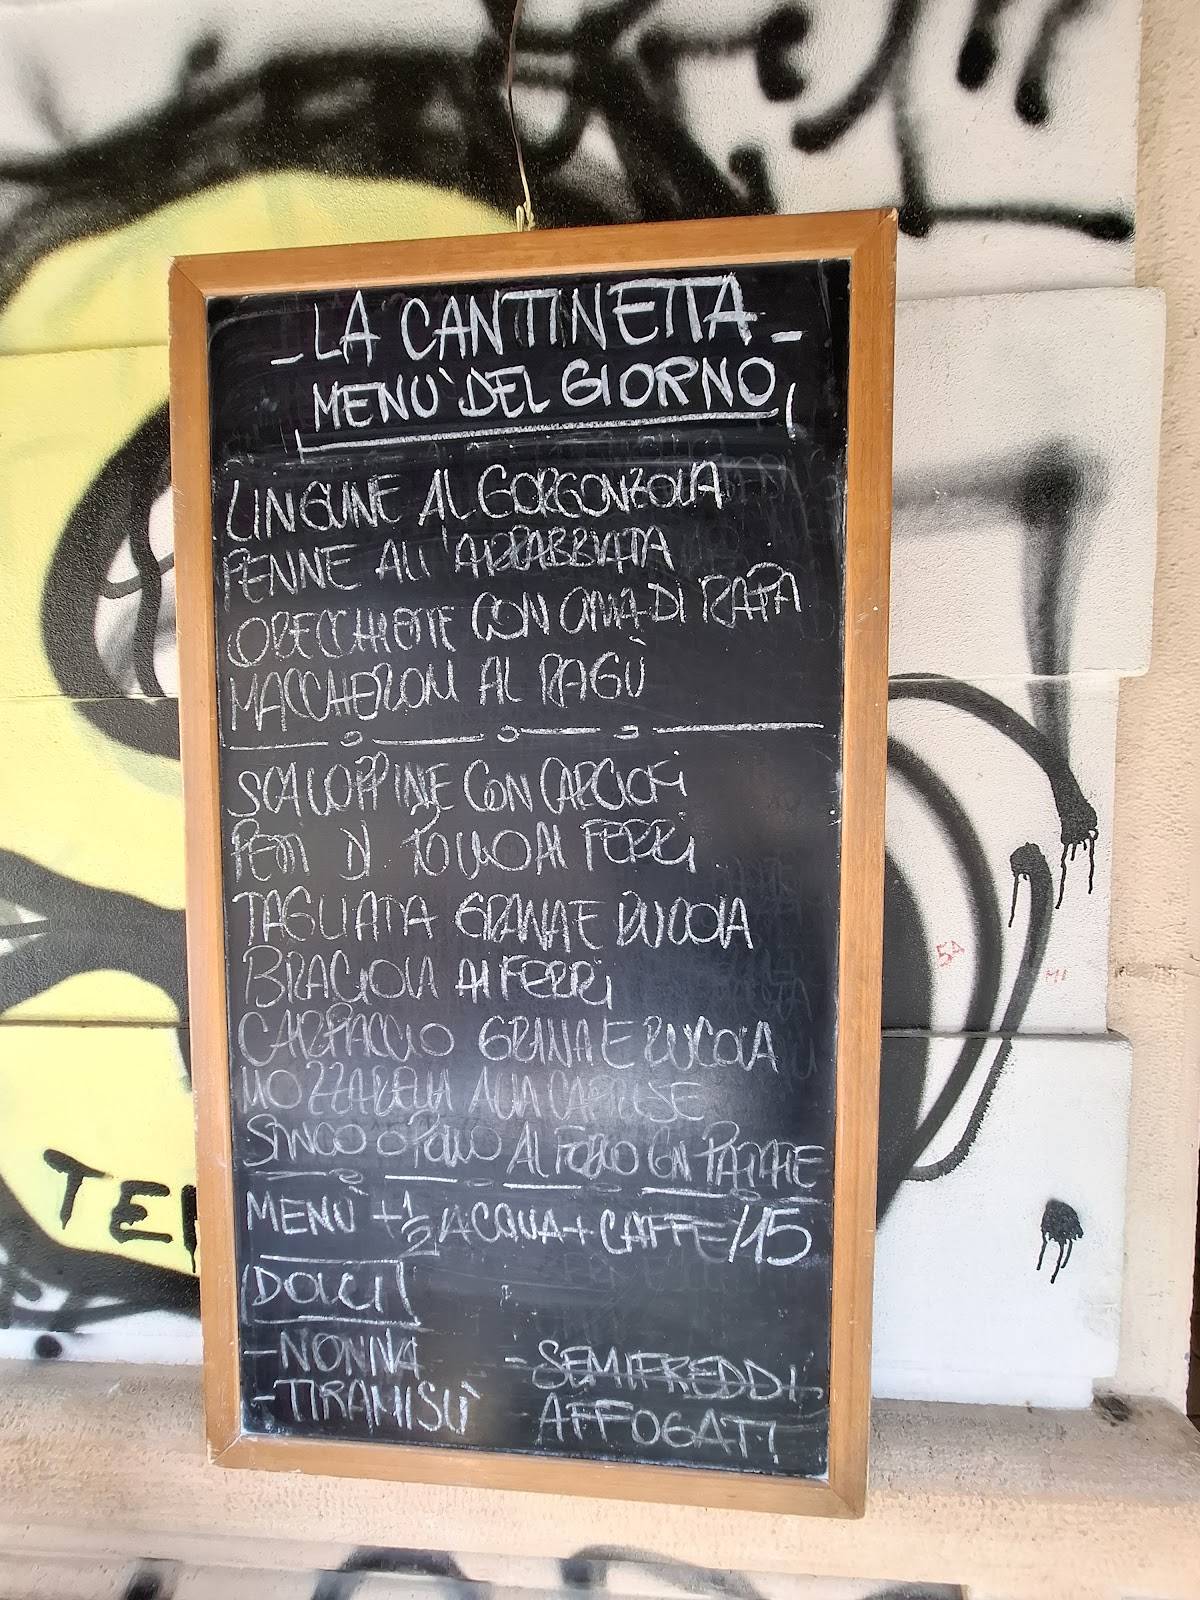 LA CANTINETTA
MENU' DEL GIORNO
LINGUINE AL GORGONZOLA
PENNE ALL'ARRABBIATA
ORECCHIETTE CON CIMA DI RAPA
MACCHERONI AL RAGÙ
SCALOPPINE CON CARCIOFI
PETTI DI POLLO AI FERRI
TAGLIATA GRANA E RUCOLA
BRACIOLA AI FERRI
CARPACCIO GRANA E RUCOLA
MOZZARELLA ALLA CAPRESE
STINCO O POLLO AL FORNO CON PATATE
MENÙ + 1/2 ACQUA + CAFFE/15
DOLCI
- NONNA - SEMIFREDDI
- TIRAMISÙ AFFOGATI
TE
54
MI